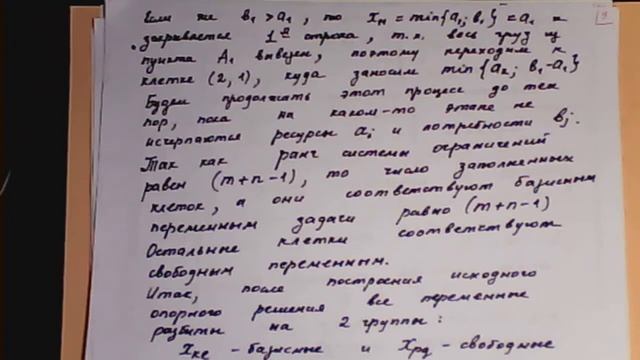 Если же b₁ > a₁, то x₁₁ = min{a₁; b₁} = a₁ и
закрывается 1ᵃ строка, т.к. весь груз из
пункта A₁ вывезен, поэтому переходим к
клетке (2, 1), куда заносим min{a₂; b₁-a₁}
Будем продолжать этот процесс до тех
пор, пока на каком-то этапе не
исчерпаются ресурсы aᵢ и потребности bⱼ.
Так как ранг системы ограничений
равен (m+n-1), то число заполненных
клеток, а они соответствуют базисным
переменным задачи равно (m+n-1)
Остальные клетки соответствуют
свободным переменным.
Итак, после построения исходного
опорного решения все переменные
разбиты на 2 группы:
xₖₑ - базисные и xₚq - свободные